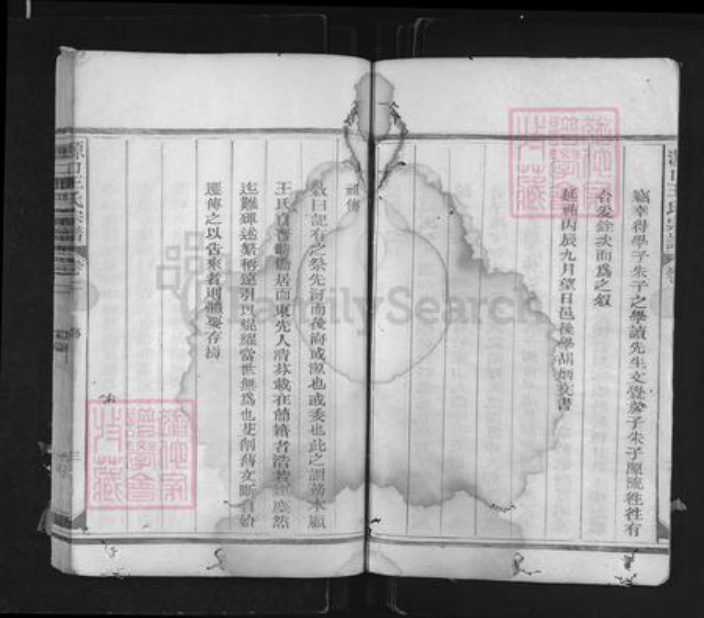 竊幸得學子朱子之學讀先生文覺於子朱子原流往往有
合爰銓次而為之叙
延祐丙辰九月望日邑後學胡炳文書
祖傳
敘曰記有之祭先河而後海或源也或委也此之謂務本顧
王氏自
居而東先人清芬載在簡籍者浩若
然
迄難殫述繁稱遠引以焜耀當世無為也
削舊文斷自始
遷傳之以告來者則體要存焉
王氏宗譜
FamilySearch
譜學會
特藏
譜學會
特藏
三